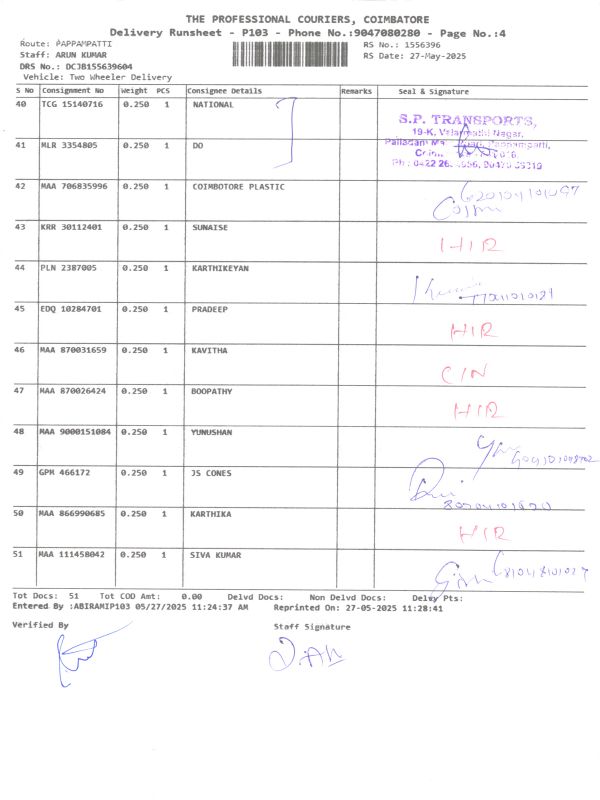 THE PROFESSIONAL COURIERS, COIMBATORE
Delivery Runsheet - P103 - Phone No.:9047080280 - Page No.:4
Route: PAPPAMPATTI RS No.: 1556396
Staff: ARUN KUMAR RS Date: 27-May-2025
DRS No.: DCJB155639604
Vehicle: Two Wheeler Delivery
S No Consignment No Weight PCS Consignee Details Remarks Seal & Signature
40 TCG 15140716 0.250 1 NATIONAL
S.P. TRANSPORTS,
19-K, Nagar,
41 MLR 3354805 0.250 1 DO
42 MAA 706835996 0.250 1 COIMBOTORE PLASTIC
43 KRR 30112401 0.250 1 SUNAISE HIR
44 PLN 2387005 0.250 1 KARTHIKEYAN
45 EDQ 10284701 0.250 1 PRADEEP HIR
46 MAA 870031659 0.250 1 KAVITHA C/N
47 MAA 870026424 0.250 1 BOOPATHY HIR
48 MAA 9000151084 0.250 1 YUNUSHAN
49 GPM 466172 0.250 1 JS CONES
50 MAA 866990685 0.250 1 KARTHIKA HIR
51 MAA 111458042 0.250 1 SIVA KUMAR
Tot Docs: 51 Tot COD Amt: 0.00 Delvd Docs: Non Delvd Docs: Delay Pts:
Entered By :ABIRAMIP103 05/27/2025 11:24:37 AM Reprinted On: 27-05-2025 11:28:41
Verified By Staff Signature